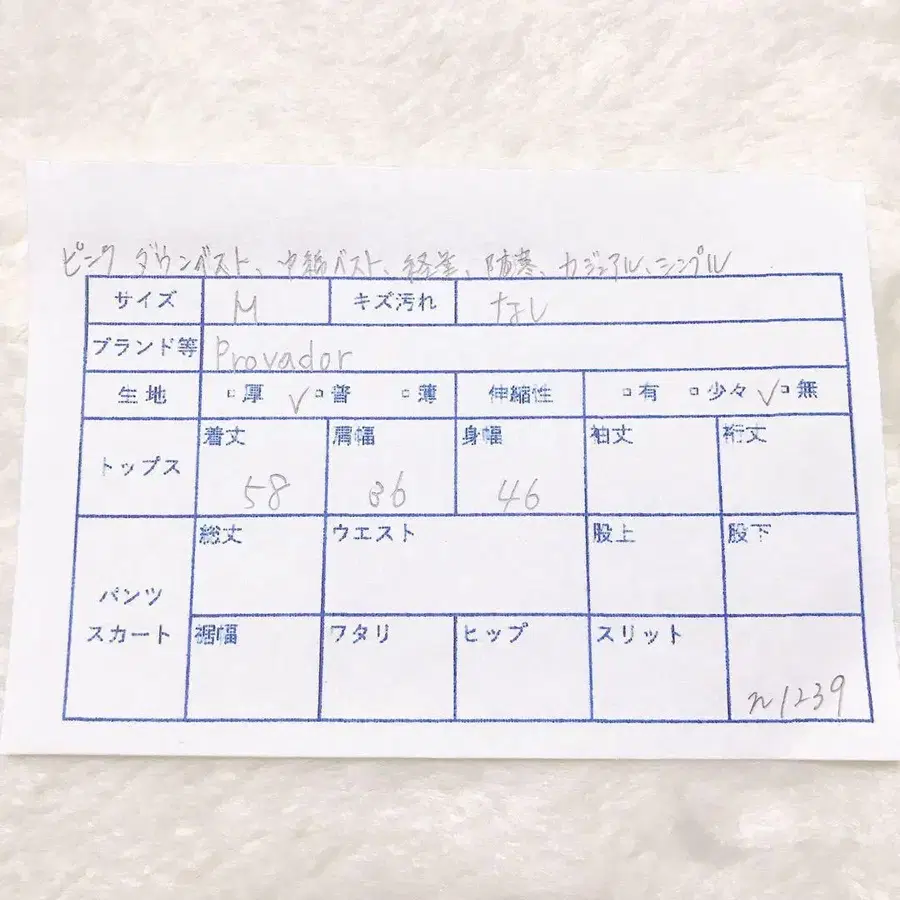 ピンク ダウンベスト、中綿ベスト、軽量、防寒、カジュアル、シンプル
サイズ M キズ汚れ なし
ブランド等 Provador
生地 □厚 ✓□普 □薄 伸縮性 □有 □少々 ✓□無
トップス 着丈 58 肩幅 36 身幅 46 袖丈 裄丈
パンツ スカート
総丈 ウエスト 股上 股下
裾幅 ワタリ ヒップ スリット n1239